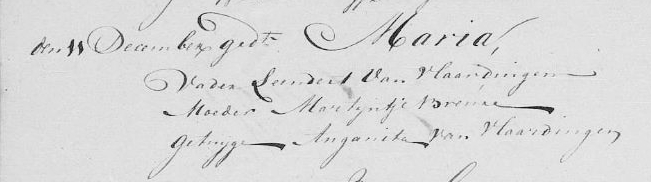 den 11 December gedt Maria,
Vader Leendert Van Vlaardingen
Moeder Martyntje
Getuyge Anganita Van Vlaardingen